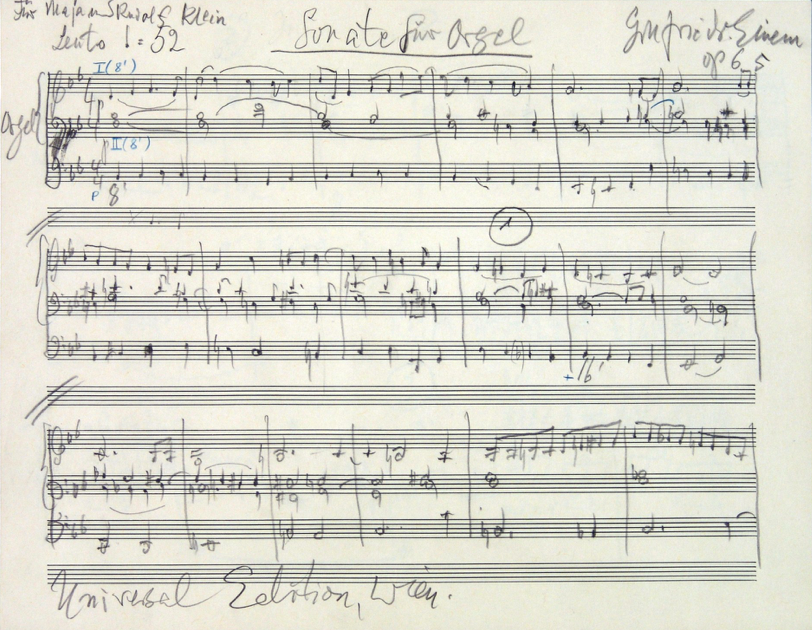 Für Maja und Rudolf Klein
Lento ♩= 52
Sonate für Orgel
Gottfried v. Einem
op 65
I (8')
Orgel
II (8')
P 8'
1
+16'
Universal Edition, Wien.